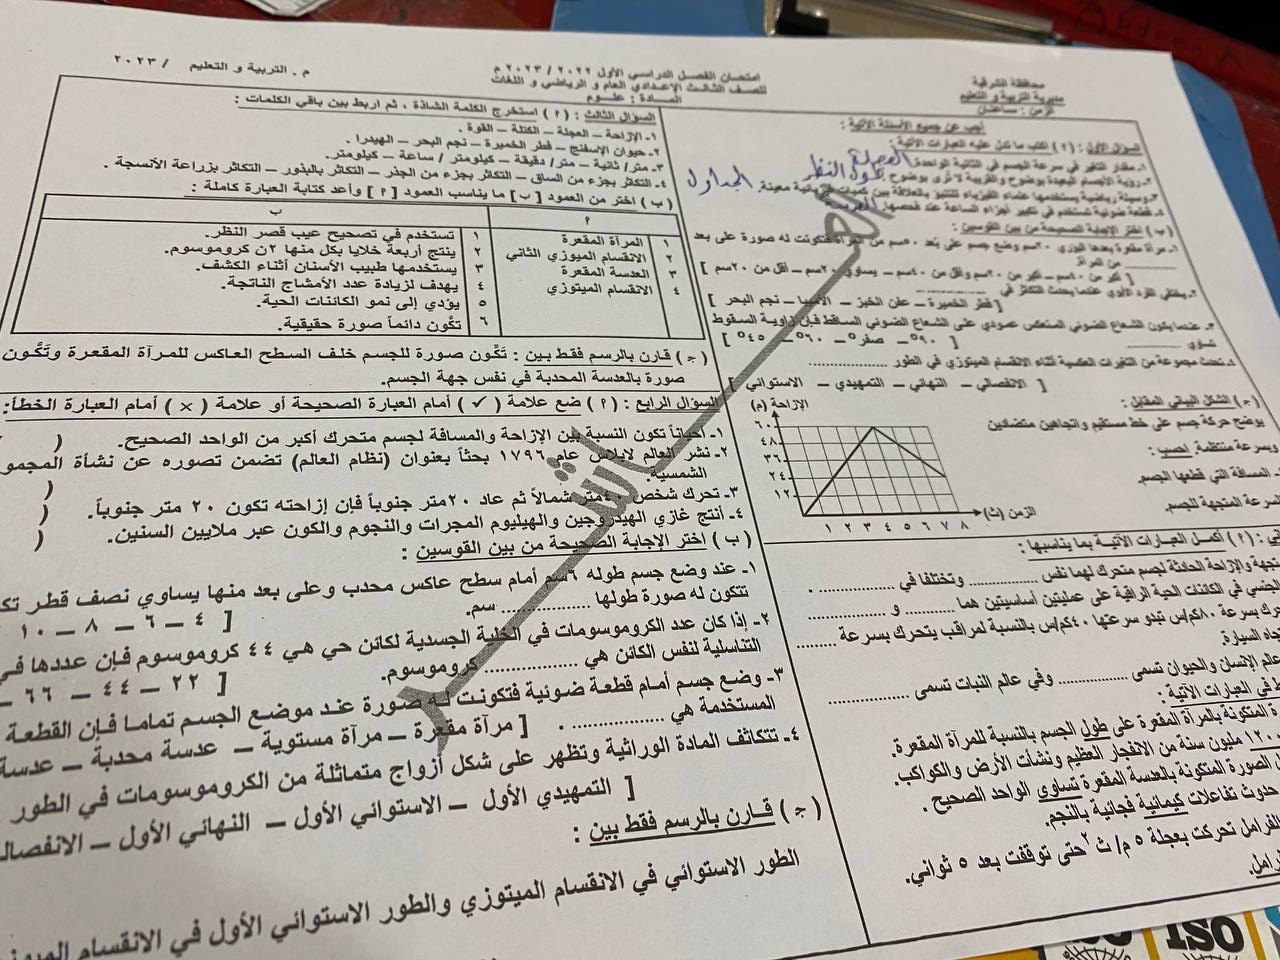 محافظة الشرقية
مديرية التربية والتعليم
الزمن : ساعتان
امتحان الفصل الدراسي الأول ٢٠٢٢ / ٢٠٢٣ م
للصف الثالث الإعدادي العام و الرياضي و اللغات
المادة : علوم
م . التربية و التعليم / ٢٠٢٣
أجب عن جميع الأسئلة الآتية :
السؤال الأول : ( ٢ ) اكتب ما تدل عليه العبارات الآتية
١- مقدار التغير في سرعة الجسم في الثانية الواحدة. العجلة
٢- رؤية الأجسام البعيدة بوضوح والقريبة لا تُرى بوضوح. طول النظر
٣- وسيلة رياضية يستخدمها علماء الفيزياء للتنبؤ بالعلاقة بين كميات فيزيائية معينة. الجداول
٤- قطعة ضوئية تستخدم في تكبير أجزاء الساعة عند فحصها.
( ب ) اختر الإجابة الصحيحة من بين القوسين :
١- مرآة مقعرة بعدها البؤري ٢٠سم وضع جسم على بُعد ٥٠سم من المرآة فتكونت له صورة على بعد
............ من المرآة.
[ أكبر من ٤٠سم – أكبر من ٢٠سم وأقل من ٤٠سم – يساوي ٢٠سم – أقل من ٢٠سم ]
٢- يختفي الفرد الأبوي عندما يحدث التكاثر في ............
[ فطر الخميرة – عفن الخبز – الأميبا – نجم البحر ]
٣- عندما يكون الشعاع الضوئي المنعكس عمودي على الشعاع الضوئي الساقط فإن زاوية السقوط
تساوي ............
[ ٩٠° – صفر° – ٦٠° – ٤٥° ]
٤- تحدث مجموعة من التغيرات العكسية أثناء الانقسام الميتوزي في الطور ............
[ الانفصالي – النهائي – التمهيدي – الاستوائي ]
( جـ ) الشكل البياني المقابل :
يوضح حركة جسم على خط مستقيم واتجاهين متضادين
وبسرعة منتظمة. احسب :
المسافة التي قطعها الجسم.
السرعة المتجهة للجسم.
الإزاحة (م)
٦٠
٤٨
٣٦
٢٤
١٢
١ ٢ ٣ ٤ ٥ ٦ ٧ ٨ الزمن (ث)
: ( ٢ ) أكمل العبارات الآتية بما يناسبها :
والإزاحة الحادثة لجسم متحرك لهما نفس ............ وتختلفا في ............ .
الجنسي في الكائنات الحية الراقية على عمليتين أساسيتين هما ............ و ............
بسرعة ٨٠كم/س تبدو سرعتها ٤٠كم/س بالنسبة لمراقب يتحرك بسرعة ............
السيارة.
عالم الإنسان والحيوان تسمى ............ وفي عالم النبات تسمى ............
في العبارات الآتية :
المتكونة بالمرآة المقعرة على طول الجسم بالنسبة للمرآة المقعرة.
مليون سنة من الانفجار العظيم ونشأت الأرض والكواكب.
الصورة المتكونة بالعدسة المقعرة تساوي الواحد الصحيح .
حدوث تفاعلات كيميائية فجائية بالنجم.
الفرامل تحركت بعجلة ٥ م/ث٢ حتى توقفت بعد ٥ ثواني.
السؤال الثالث : ( ٢ ) استخرج الكلمة الشاذة ، ثم اربط بين باقي الكلمات :
١- الإزاحة – العجلة – الكتلة – القوة .
٢- حيوان الإسفنج – فطر الخميرة – نجم البحر – الهيدرا .
٣- متر/ ثانية – متر/ دقيقة – كيلومتر / ساعة – كيلومتر.
٤- التكاثر بجزء من الساق – التكاثر بجزء من الجذر – التكاثر بالبذور – التكاثر بزراعة الأنسجة .
( ب ) اختر من العمود [ ب ] ما يناسب العمود [ ٢ ] وأعد كتابة العبارة كاملة :
٢ ب
١ المرآة المقعرة ١ تستخدم في تصحيح عيب قصر النظر.
٢ الانقسام الميوزي الثاني ٢ ينتج أربعة خلايا بكل منها ٢ن كروموسوم.
٣ العدسة المقعرة ٣ يستخدمها طبيب الأسنان أثناء الكشف.
٤ الانقسام الميتوزي ٤ يهدف لزيادة عدد الأمشاج الناتجة.
٥ يؤدي إلى نمو الكائنات الحية.
٦ تكون دائماً صورة حقيقية.
( جـ ) قارن بالرسم فقط بين : تَكُّون صورة للجسم خلف السطح العاكس للمرآة المقعرة وتَكُّون
صورة بالعدسة المحدبة في نفس جهة الجسم.
السؤال الرابع : ( ٢ ) ضع علامة ( ✓ ) أمام العبارة الصحيحة أو علامة ( × ) أمام العبارة الخطأ:
١- أحياناً تكون النسبة بين الإزاحة والمسافة لجسم متحرك أكبر من الواحد الصحيح. ( )
٢- نشر العالم لابلاس عام ١٧٩٦ بحثاً بعنوان (نظام العالم) تضمن تصوره عن نشأة
الشمسية.
٣- تحرك شخص متر شمالاً ثم عاد ٢٠متر جنوباً فإن إزاحته تكون ٢٠ متر جنوباً.
٤- أنتج غازي الهيدروجين والهيليوم المجرات والنجوم والكون عبر ملايين السنين.
( ب ) اختر الإجابة الصحيحة من بين القوسين :
١- عند وضع جسم طوله ٦سم أمام سطح عاكس محدب وعلى بعد منها يساوي نصف قطر
تتكون له صورة طولها ............ سم.
[ ٤ – ٦ – ٨ – ١٠
٢- إذا كان عدد الكروموسومات في الخلية الجسدية لكائن حي هي ٤٤ كروموسوم فإن عددها
التناسلية لنفس الكائن هي ............ كروموسوم.
[ ٢٢ – ٤٤ – ٦٦ –
٣- وضع جسم أمام قطعة ضوئية فتكونت له صورة عند موضع الجسم تماما فإن القطعة
المستخدمة هي ............ .
[ مرآة مقعرة – مرآة مستوية – عدسة محدبة –
٤- تتكاثف المادة الوراثية وتظهر على شكل أزواج متماثلة من الكروموسومات في الطور
[ التمهيدي الأول – الاستوائي الأول – النهائي الأول –
( جـ ) قارن بالرسم فقط بين :
الطور الاستوائي في الانقسام الميتوزي والطور الاستوائي الأول في الانقسام
ISO